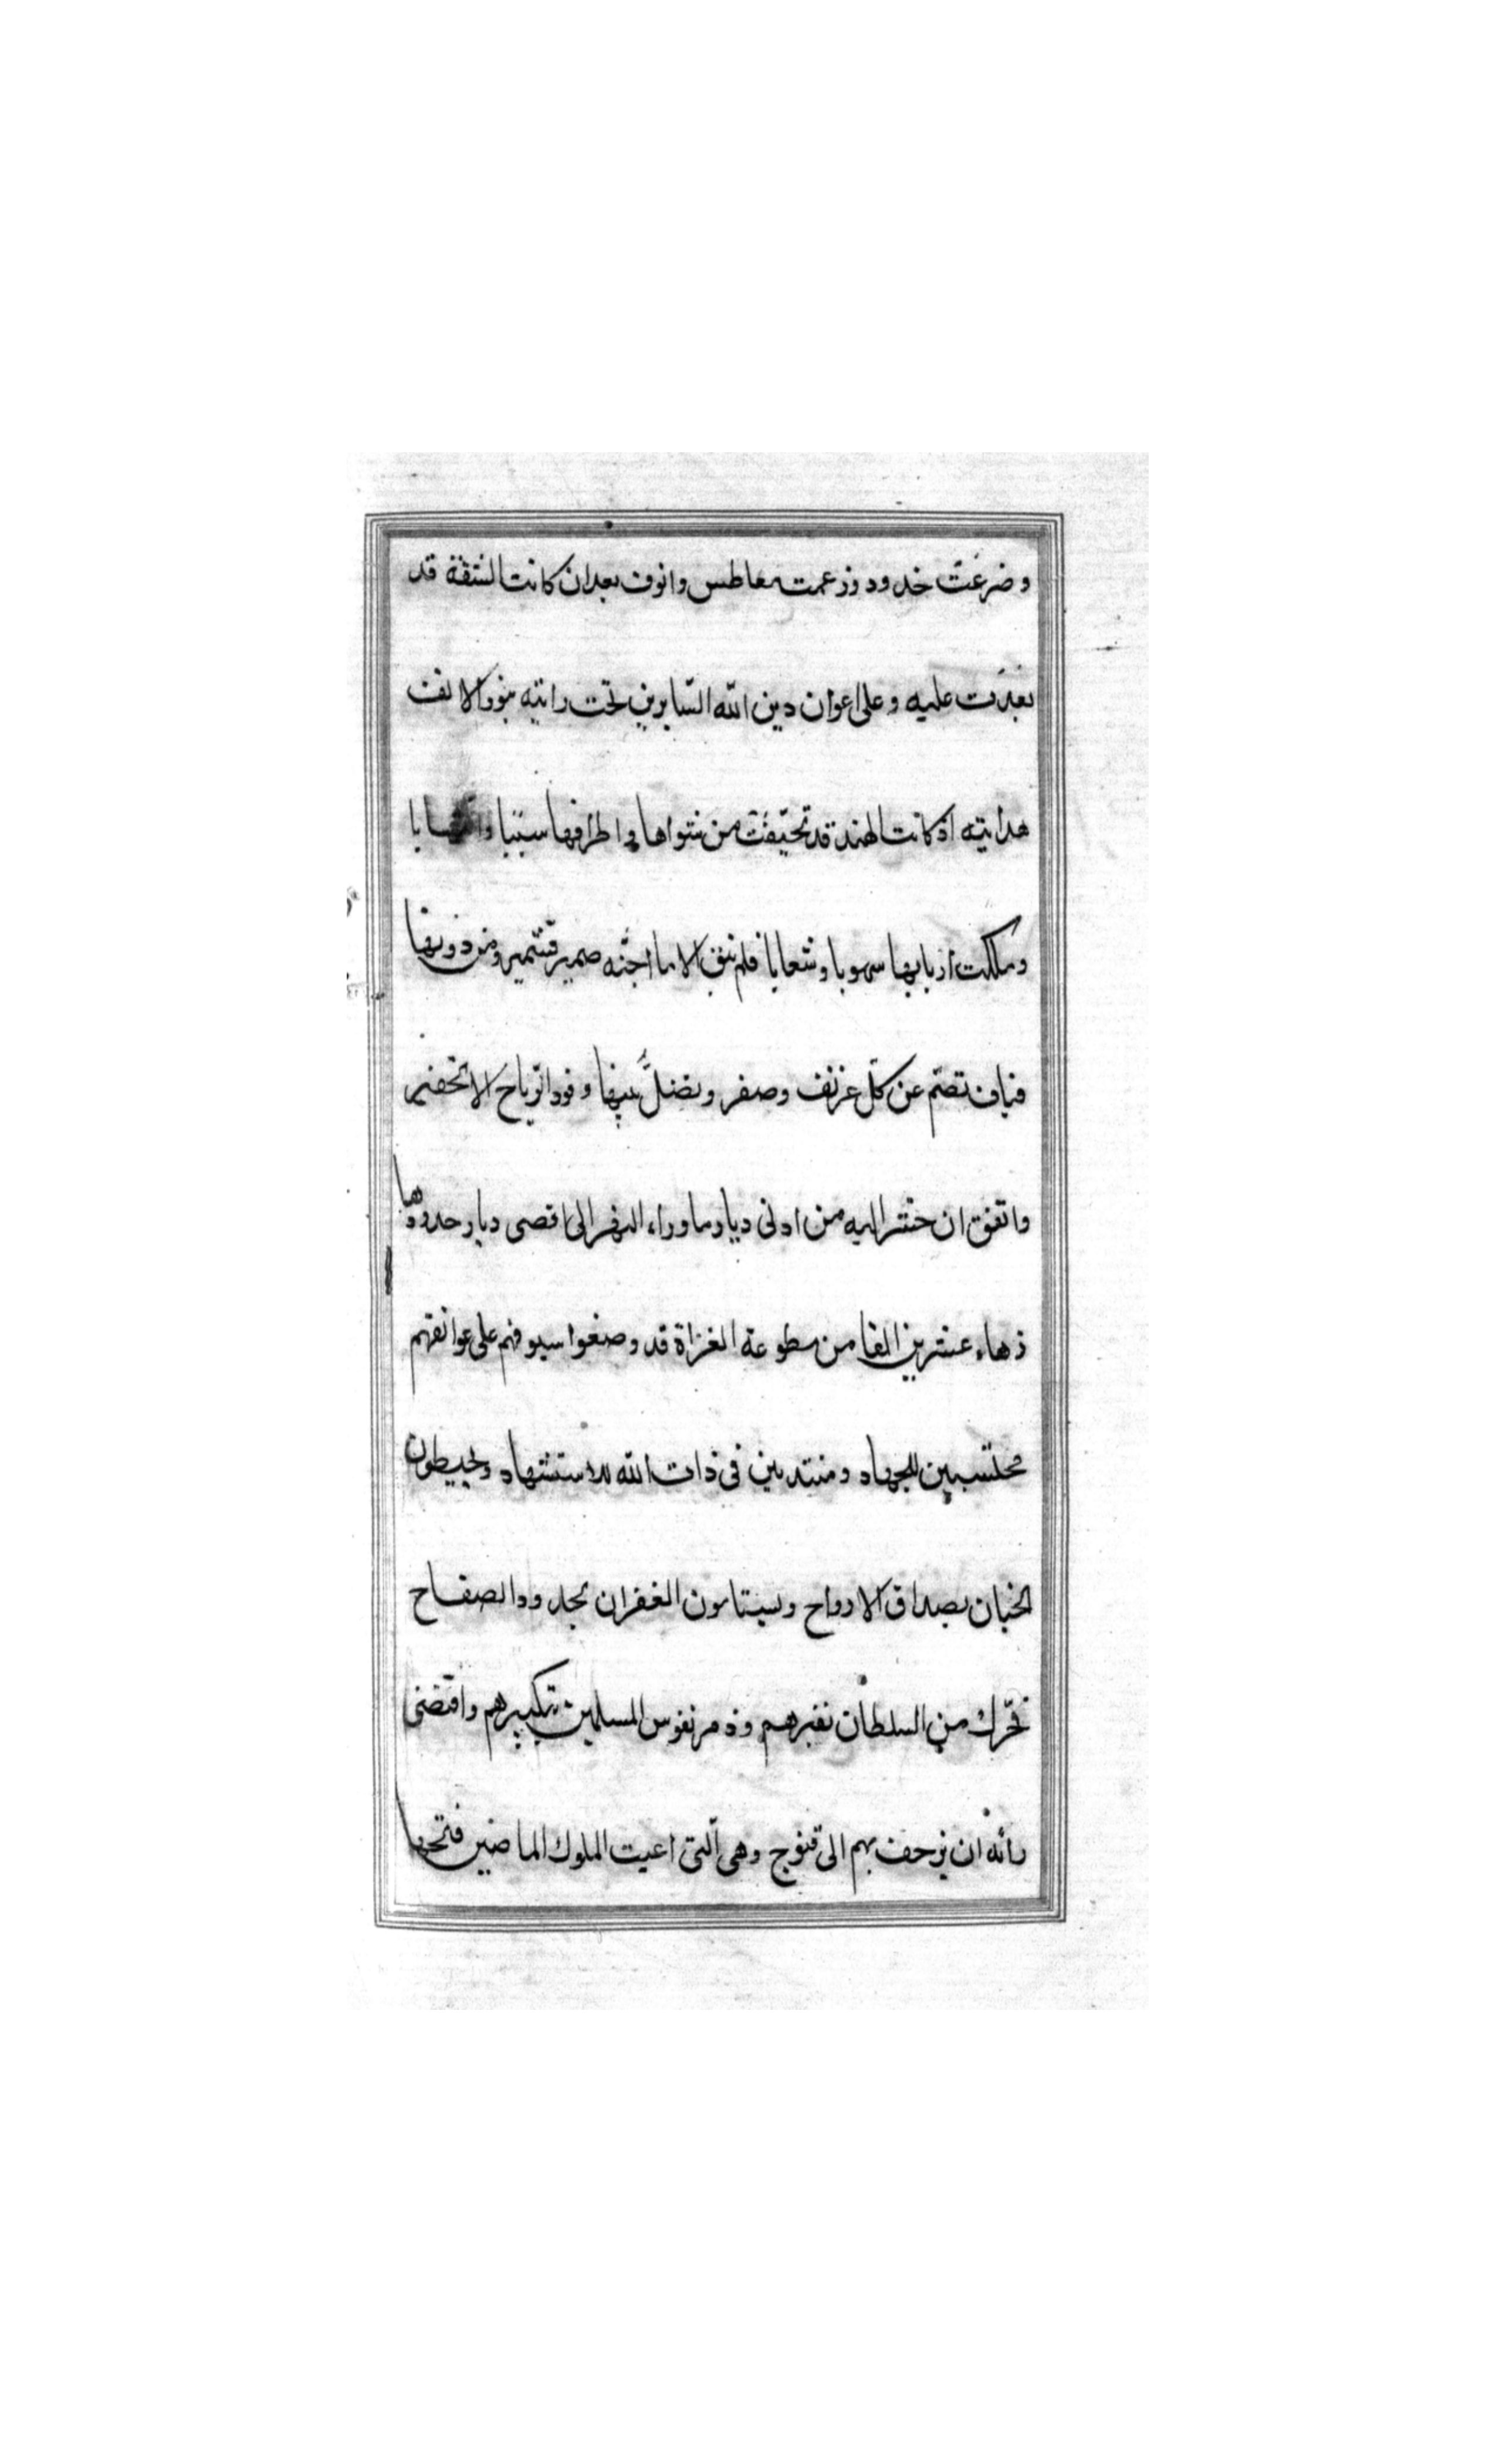 وضرعت خدود وزعمت معاطس وانوف بعد ان كانت الشقة قد
بعدت عليه وعلى اعوان دين الله السّايرين تحت رايته بنور الايف
هدايته اذ كانت الهند قد تحيّفت من شواها واطرافها سبيا
وملكت اربابها سهوبا وشعابا فلم يبق الا ما اجنّه ضمير قشمير ومن دونها
فياف تصمّ عن كلّ عزف وصفر ويضلّ فيها وفود الرّياح الا بخفير
واتفق ان حشر اليه من ادنى ديار ما وراء النهر الى اقصى ديار حدودها
زهاء عشرين الفا من مطوعة الغزاة قد وضعوا سيوفهم على عواتقهم
محتسبين للجهاد ومنتدبين فى ذات الله للاستشهاد ويخطبون
الجنان بصداق الارواح ويستامون الغفران بحدود الصفاح
فحرّك من السلطان نفيرهم وذمر نفوس المسلمين تكبيرهم واقتضى
رأيه ان يزحف بهم الى قنوج وهى الّتى اعيت الملوك الماضين فتحها